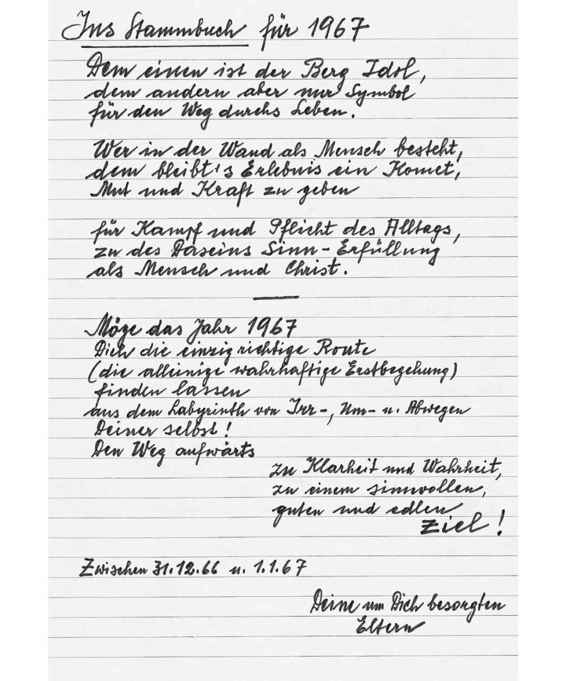 Ins Stammbuch für 1967
Dem einen ist der Berg Idol,
dem andern aber nur Symbol
für den Weg durchs Leben.
Wer in der Wand als Mensch besteht,
dem bleibt's Erlebnis ein Komet,
Mut und Kraft zu geben
für Kampf und Pflicht des Alltags,
zu des Daseins Sinn-Erfüllung
als Mensch und Christ.
Möge das Jahr 1967
Dich die einzig richtige Route
(die alleinige wahrhaftige Erstbegehung)
finden lassen
aus dem Labyrinth von Irr-, Um- u. Abwegen
Deiner selbst!
Den Weg aufwärts
zu Klarheit und Wahrheit,
zu einem sinnvollen,
guten und edlen
Ziel!
Zwischen 31.12.66 u. 1.1.67
Deine um Dich besorgten
Eltern